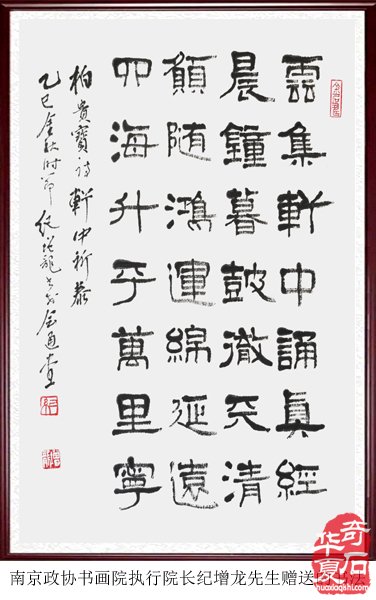 雲集軒中誦眞經
晨鐘暮皷徹天清
願随鴻運綿延遠
四海升平萬里寧
柏貴寶詩軒中祈恭
乙巳金秋时节纪增龍书於金通
南京政协书画院执行院长纪增龙先生赠送书法
华夏奇石